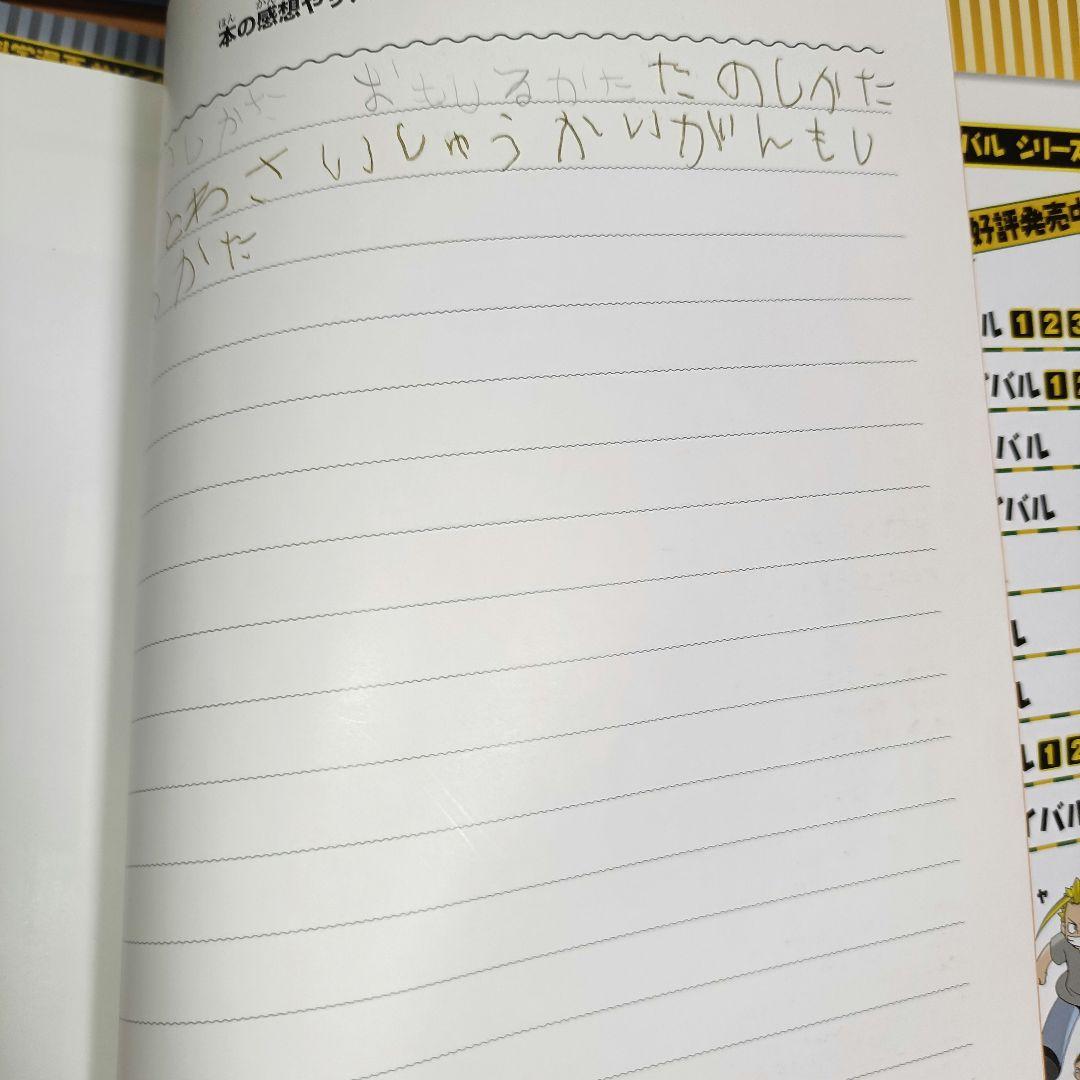 本の感想や
ほん
しかた おもしるかた たのしかた
とわさいしゅうかいがんもし
かた
バル シリーズ
好評発売中
ル 1 2 3
バル 1
バル
バル
ル
ル
ル 1 2
イバル
ャ